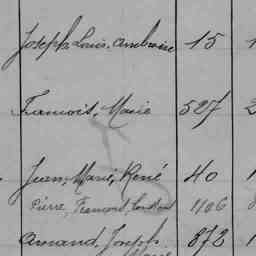 Joseph Louis Ambroise 15 1
François, Marie 527 2
Jean, Marie, René 40 1
Pierre, François, 1106
Armand, Joseph 872 1
Marie